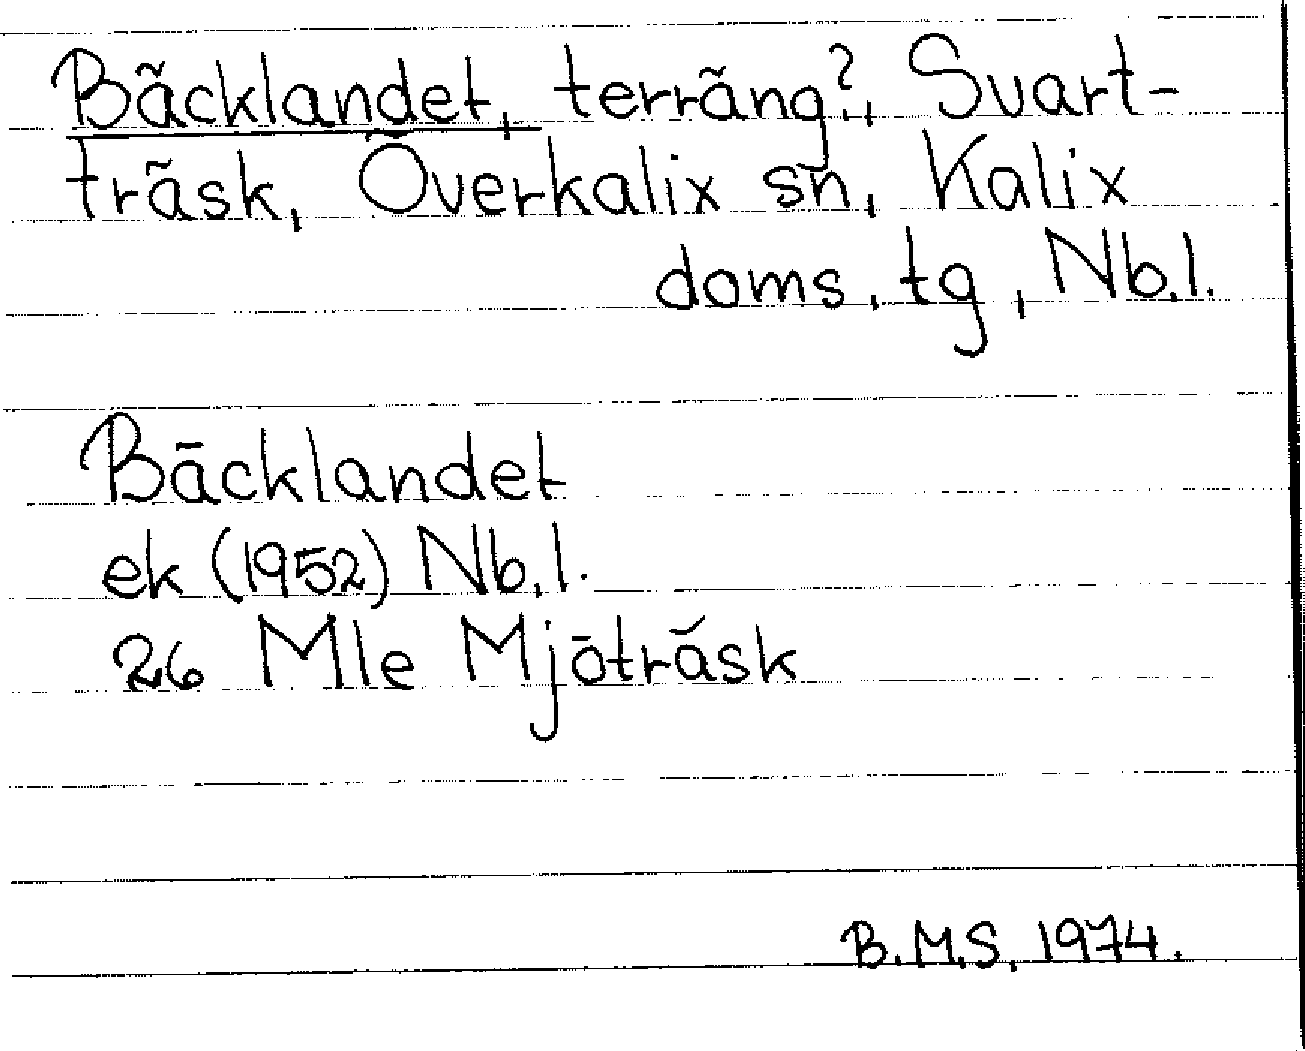 Bäcklandet, terräng?, Svart-
träsk, Överkalix sn, Kalix
doms. tg, Nb.l.
Bäcklandet
ek (1952) Nb.l.
26 Mle Mjöträsk
B.M.S. 1974.